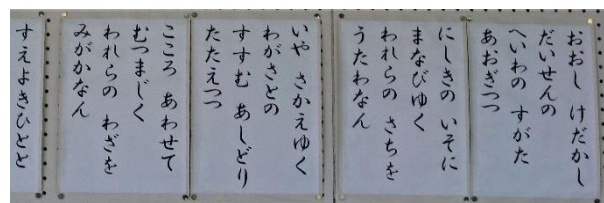 おおし けだかし
だいせんの
へいわの すがた
あおぎつつ
にしきの いそに
まなびゆく
われらの さちを
うたわなん
いや さかえゆく
わがさとの
すすむ あしどり
たたえつつ
こころ あわせて
むつまじく
われらの わざを
みがかなん
すえよきひとと